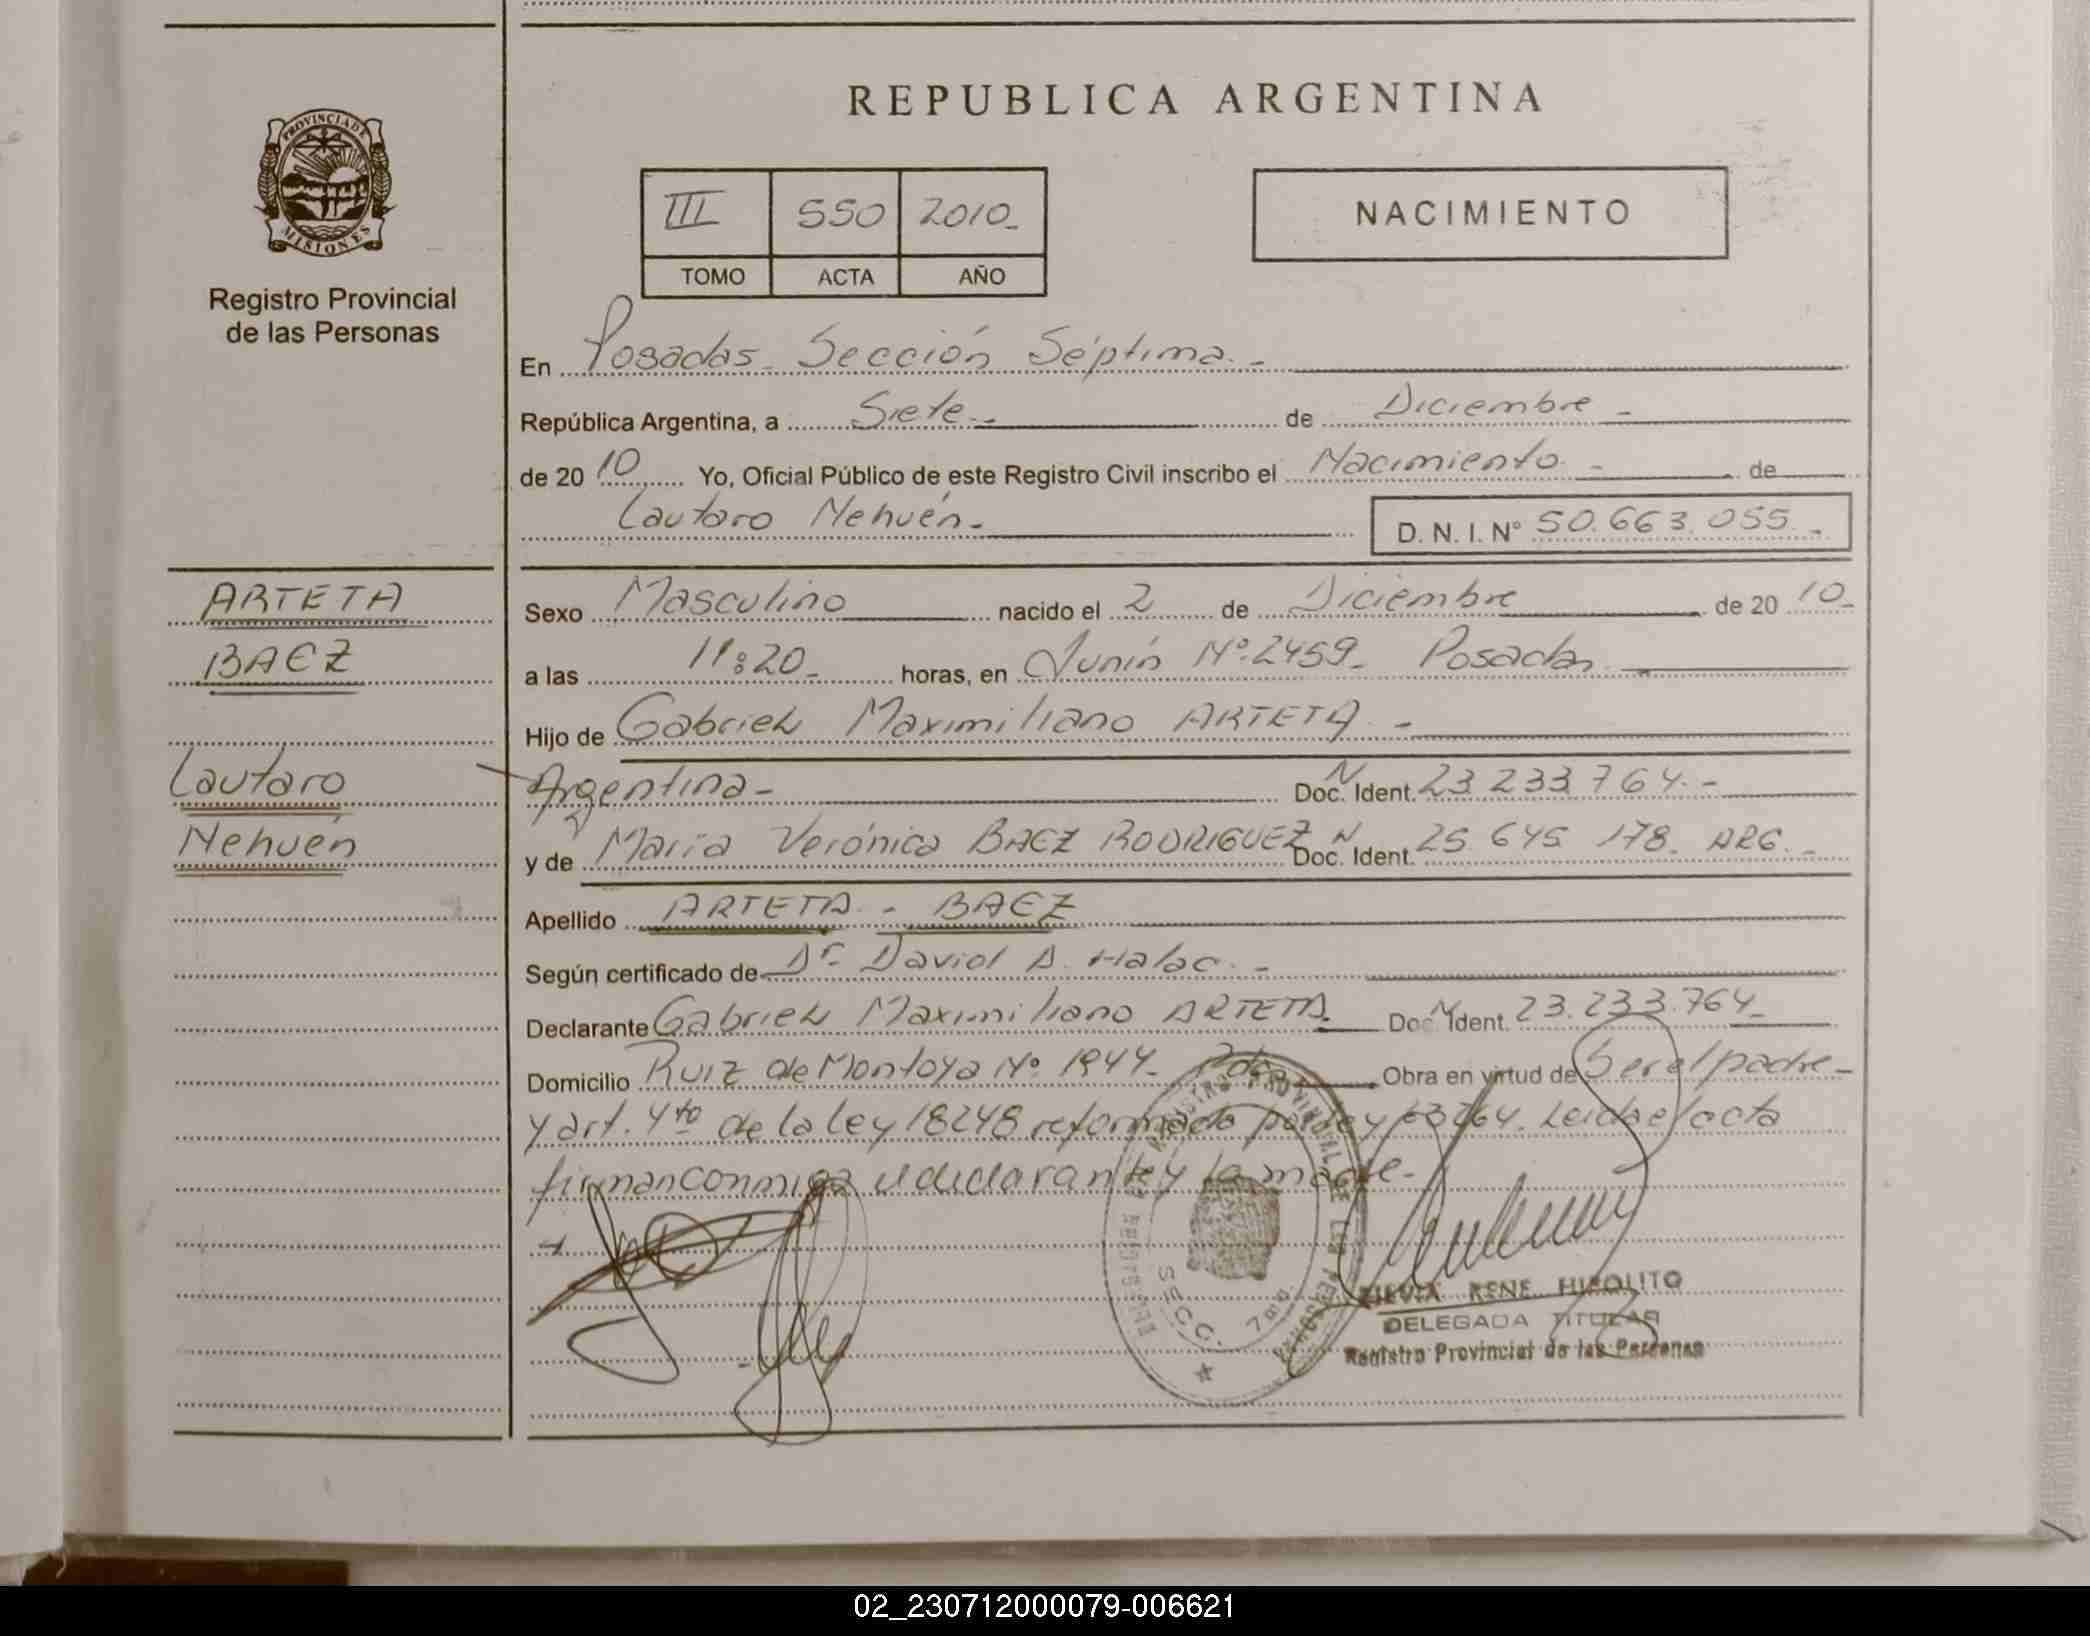 REPUBLICA ARGENTINA
PROVINCIA DE
MISIONES
Registro Provincial
de las Personas
III 550 2010_
TOMO ACTA AÑO
NACIMIENTO
En Posadas_ Sección Séptima._
República Argentina, a Siete._ de Diciembre_
de 20 10 Yo, Oficial Público de este Registro Civil inscribo el Nacimiento._ de
Lautaro Nehuén._
D. N. I. N° 50.663.055._
ARTETA
BAEZ
Lautaro
Nehuén
Sexo Masculino nacido el 2 de Diciembre de 20 10_
a las 11:20_ horas, en Junín N° 2459_ Posadas
Hijo de Gabriel Maximiliano ARTETA._
Argentina_ Doc. N Ident. 23.233.764._
y de María Verónica BAEZ RODRIGUEZ Doc. N Ident. 25.645.178. ARG._
Apellido ARTETA - BAEZ
Según certificado de Dr. David A. Halac._
Declarante Gabriel Maximiliano ARTETA. Doc. N Ident. 23.233.764_
Domicilio Ruiz de Montoya N° 1944_ Pdas Obra en virtud de Ser el padre_
y art. 4to de la ley 18248 reformada por ley 23264. Leida el acta
firman conmigo el declarante y la madre._
REGISTRO PROVINCIAL DE LAS PERSONAS
SECC. 7ma
SILVIA RENE HIPOLITO
DELEGADA TITULAR
Registro Provincial de las Personas
02_230712000079-006621